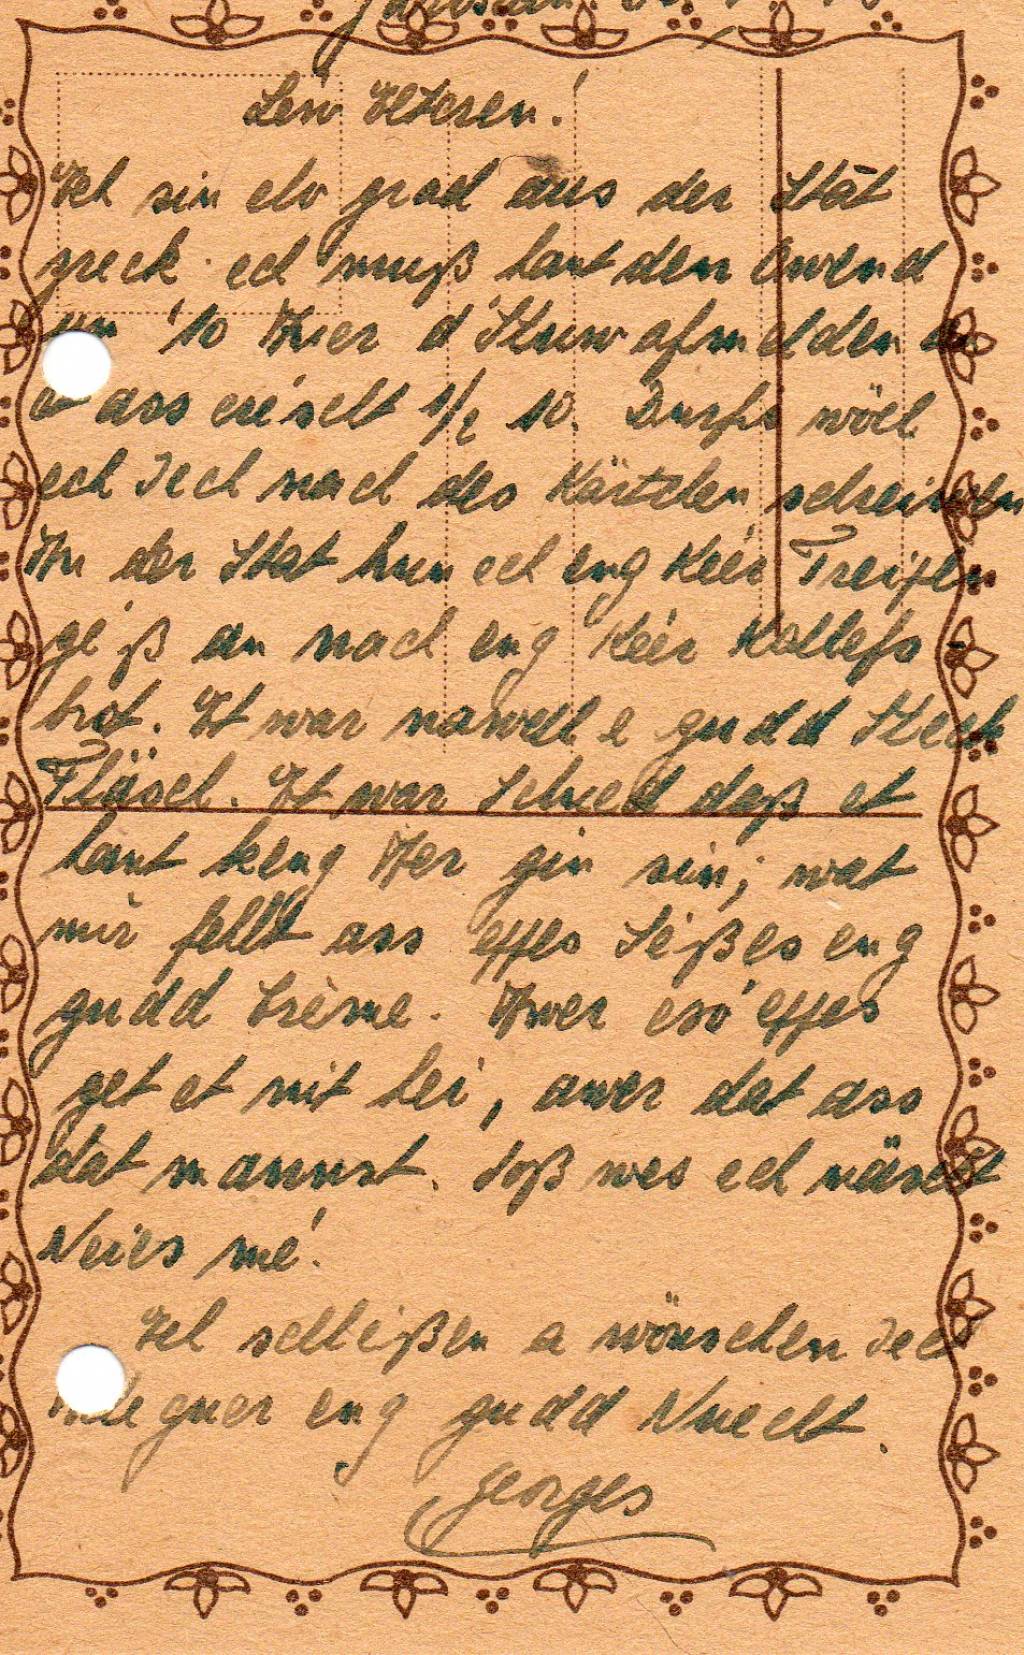 Léiw Elteren!
Ech sin elo grad aus der Stât
zreck ech muß haut den Owend
um 10 Auer d'Stuw afmelden a
et ass eréischt 1/2 10. Durfir wöll
ech Iech nach des Kärtchen schreiwen
An der Stat hun ech eng Kéér Treipen
géiß an nach eng Kéér Kallefs-
brot. Et war nawell e gudd Steck
Fläsch. Et war Schued daß et
haut keng Ier gin sin; wat
mir fehlt ass eppes Séißes eng
gudd Crème. Awer esó eppes
get et nit hei, awer dat ass
dat mannst. Soß wes ech näischt
Neies mé.
Ech schléißen a wönschen Iech
alleguer eng gudd Nuecht.
Georges